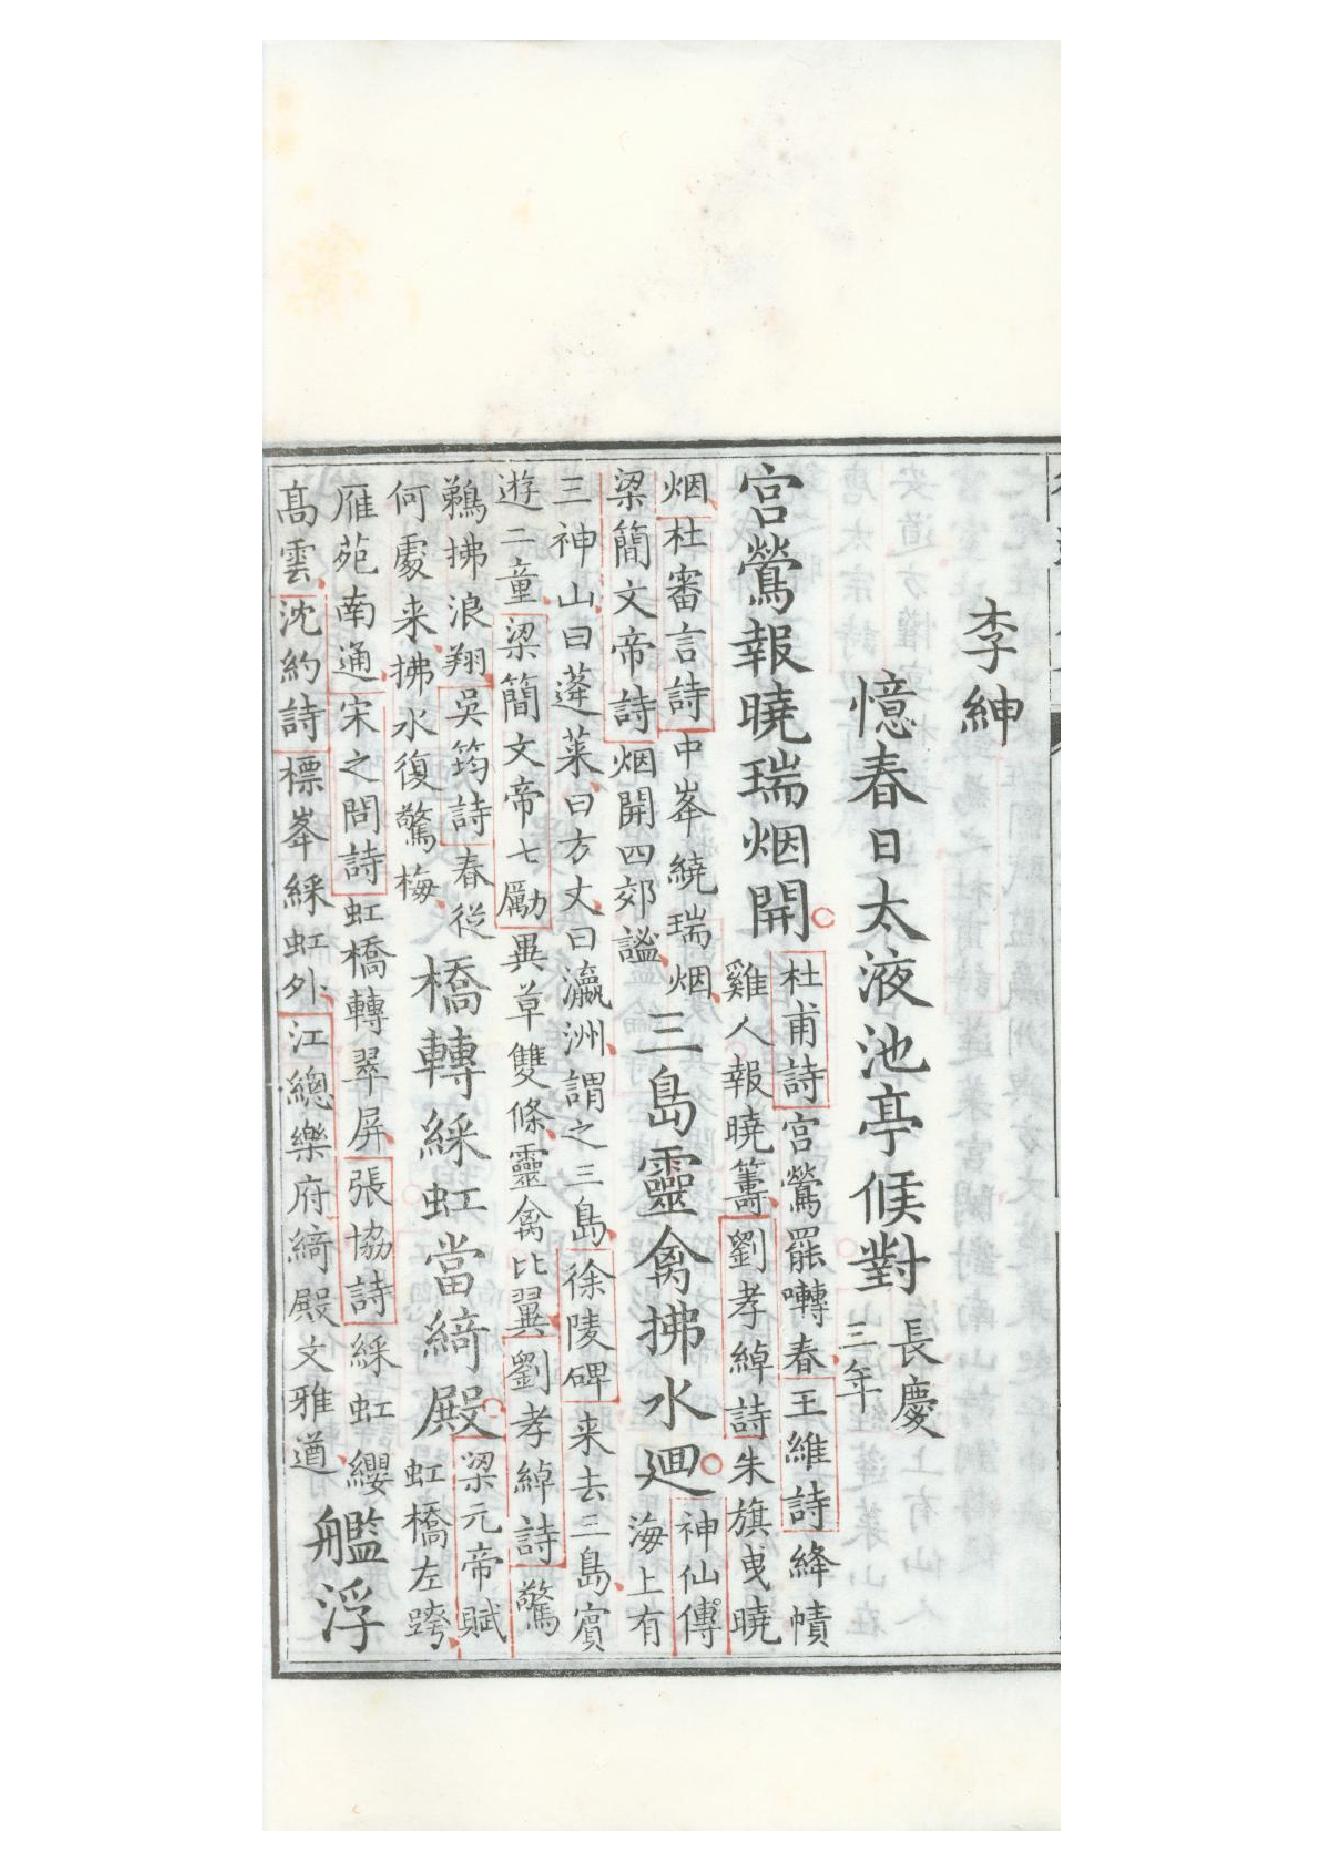 李紳
憶春日太液池亭候對
長慶
三年
宮鶯報曉瑞烟開
杜甫詩宮鶯罷囀春王維詩絳幘
雞人報曉籌劉孝綽詩朱旗曵曉
烟杜審言詩中峯繞瑞烟
梁簡文帝詩烟開四郊謐
三島靈禽拂水廻
神仙傳
海上有
三神山曰蓬萊曰方丈曰瀛洲謂之三島徐陵碑来去三島賓
遊二童梁簡文帝七勵異草雙條靈禽比翼劉孝綽詩驚
鵜拂浪翔吳筠詩春從
何處来拂水復驚梅
橋轉綵虹當綺殿
梁元帝賦
虹橋左跨
雁苑南通宋之問詩虹橋轉翠屏張協詩綵虹纓
高雲沈約詩標峯綵虹外江總樂府綺殿文雅遒
艦浮